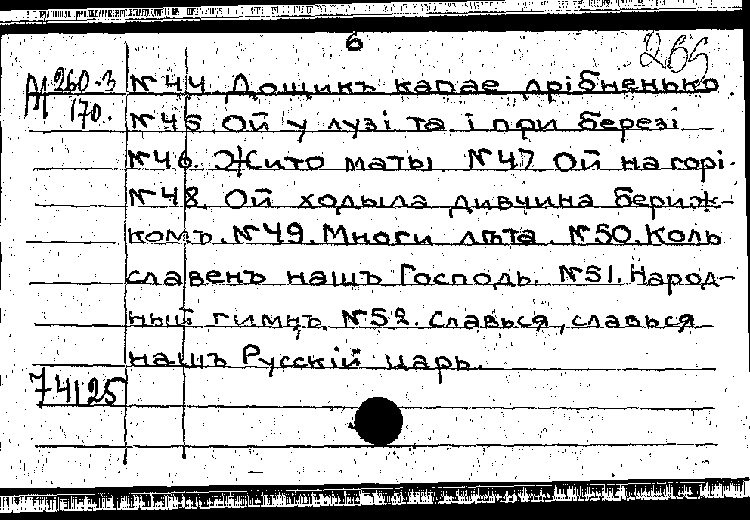 6
265
А 260-3
170.
№44. Дощикъ капае дрібненько.
№45 Ой у лузі та і при березі
№46. Жито маты №47 Ой на горі.
№48. Ой ходыла дивчина бериж-
комъ. №49. Многи лѣта. №50. Коль
славенъ нашъ Господь. №51. Народ-
ный гимнъ. №52. Славься, славься
нашъ Русскій царь.
74125